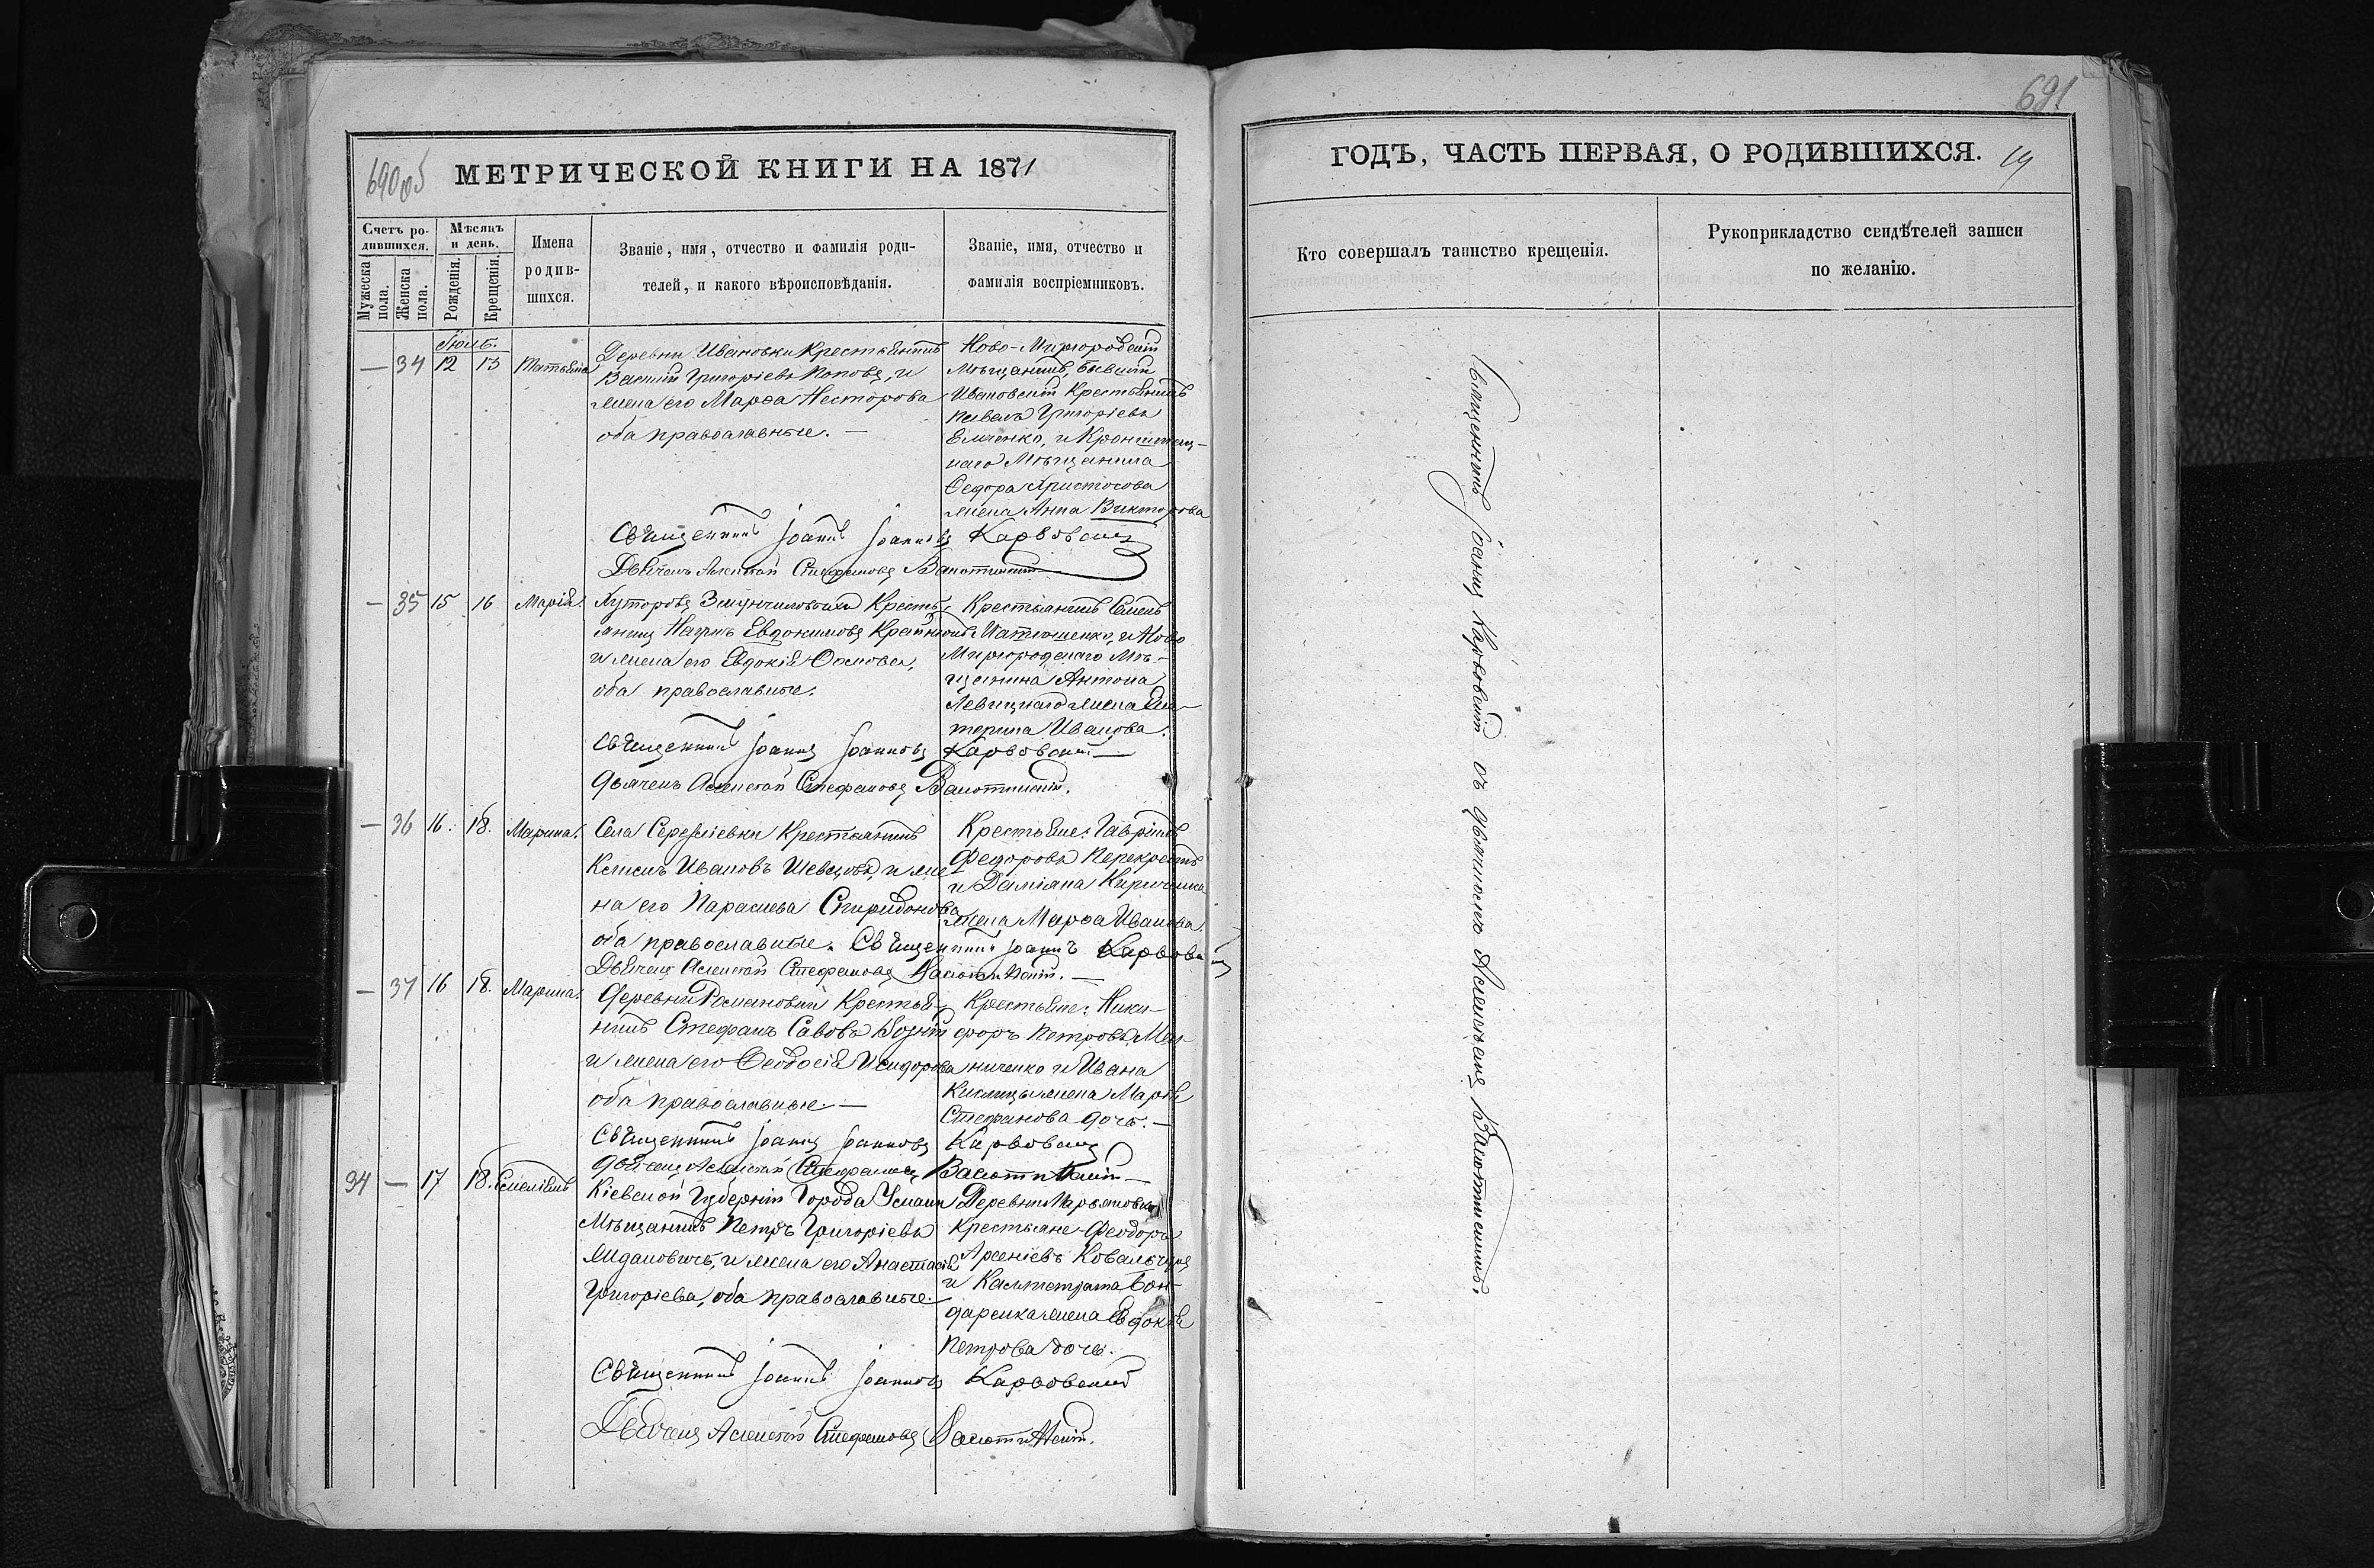 690 об
МЕТРИЧЕСКОЙ КНИГИ НА 1871
Счетъ родившихся.
Мужеска пола.
Женска пола.
Мѣсяцъ и день.
Рожденія.
Крещенія.
Имена родившихся.
Званіе, имя, отчество и фамилія роди-
телей, и какого вѣроисповѣданія.
Званіе, имя, отчество и
фамилія воспріемниковъ.
— 34 12 13 Татьяна
Деревни Ивановки Крестьянинъ
Василій Григорьевъ Поповъ, и
жена его Марѳа Несторова
оба православные. —
Ново-Миргородскій
Мѣщанинъ, бывшій
Ивановскій Крестьянинъ
Павелъ Григоріевъ
наго Мѣщанина
Ѳедора Христофова
жена Анна Викторова
Священникъ Іоаннъ Іоанновъ Карвовскій
Дьячекъ Алексѣй Стефановъ
— 35 15 16 Марія.
Хуторовъ Крестья-
нинъ Наумъ Евдокимовъ
и жена его Евдокія
оба православные.
Крестьянинъ Семенъ
и Ново
Миргородскаго Мѣ-
щанина Антона
Левицкаго жена Ека-
терина Иванова.
Священникъ Іоаннъ Іоанновъ Карвовскій —
Дьячекъ Алексѣй Стефановъ
— 36 16. 18. Марина.
Села Крестьянинъ
Ивановъ Шевцовъ, и же
на его Параскева Спиридонова
оба православные. Священникъ Іоаннъ Карвовскій
Крестьяне: Гавріилъ
Федоровъ
и Даміана Кириченка
жена Марѳа Иванова.
Дьячекъ Алексѣй Стефановъ
— 37 16 18. Марина.
Деревни Крестья-
нинъ Стефанъ Савовъ
и жена его Ѳеодосія Исидорова
оба православные. —
Крестьяне: Ники-
форъ Петровъ Мель-
ниченко и Ивана
жена Марія
Стефанова дочь. —
Священникъ Іоаннъ Іоанновъ Карвовскій
Дьячекъ Алексѣй Стефановъ
34 — 17 18. Емеліянъ
Кіевской Губерніи Города Умани
Мѣщанинъ Петръ Григоріевъ
и жена его Анастасія
Григоріева, оба православные.
Деревни Марьяновки
Крестьяне Феодоръ
Арсеніевъ Ковальчукъ
и Каллистрата Бон-
даренка жена Евдокія
Петрова дочь.
Священникъ Іоаннъ Іоанновъ Карвовскій
Дьячекъ Алексѣй Стефановъ
691
ГОДЪ, ЧАСТЬ ПЕРВАЯ, О РОДИВШИХСЯ.
19
Кто совершалъ таинство крещенія.
Рукоприкладство свидѣтелей записи
по желанію.
Священникъ Іоаннъ Карвовскій съ дьячкомъ Алексѣемъ